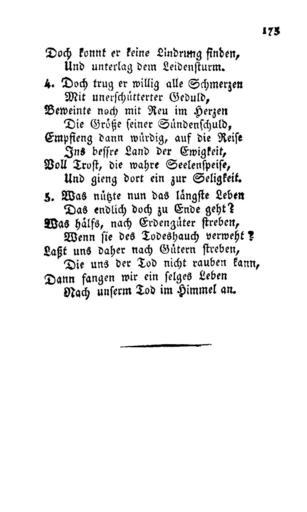 175
Doch konnt er keine Lindrung finden,
Und unterlag dem Leidensturm.
4. Doch trug er willig alle Schmerzen
Mit unerschütterter Geduld,
Beweinte noch mit Reu im Herzen
Die Größe seiner Sündenschuld,
Empfieng dann würdig, auf die Reise
Ins beßre Land der Ewigkeit,
Voll Trost, die wahre Seelenspeise,
Und gieng dort ein zur Seligkeit.
5. Was nützte nun das längste Leben
Das endlich doch zu Ende geht?
Was hälfs, nach Erdengüter streben,
Wenn sie des Todeshauch verweht?
Laßt uns daher nach Gütern streben,
Die uns der Tod nicht rauben kann,
Dann fangen wir ein selges Leben
Nach unserm Tod im Himmel an.